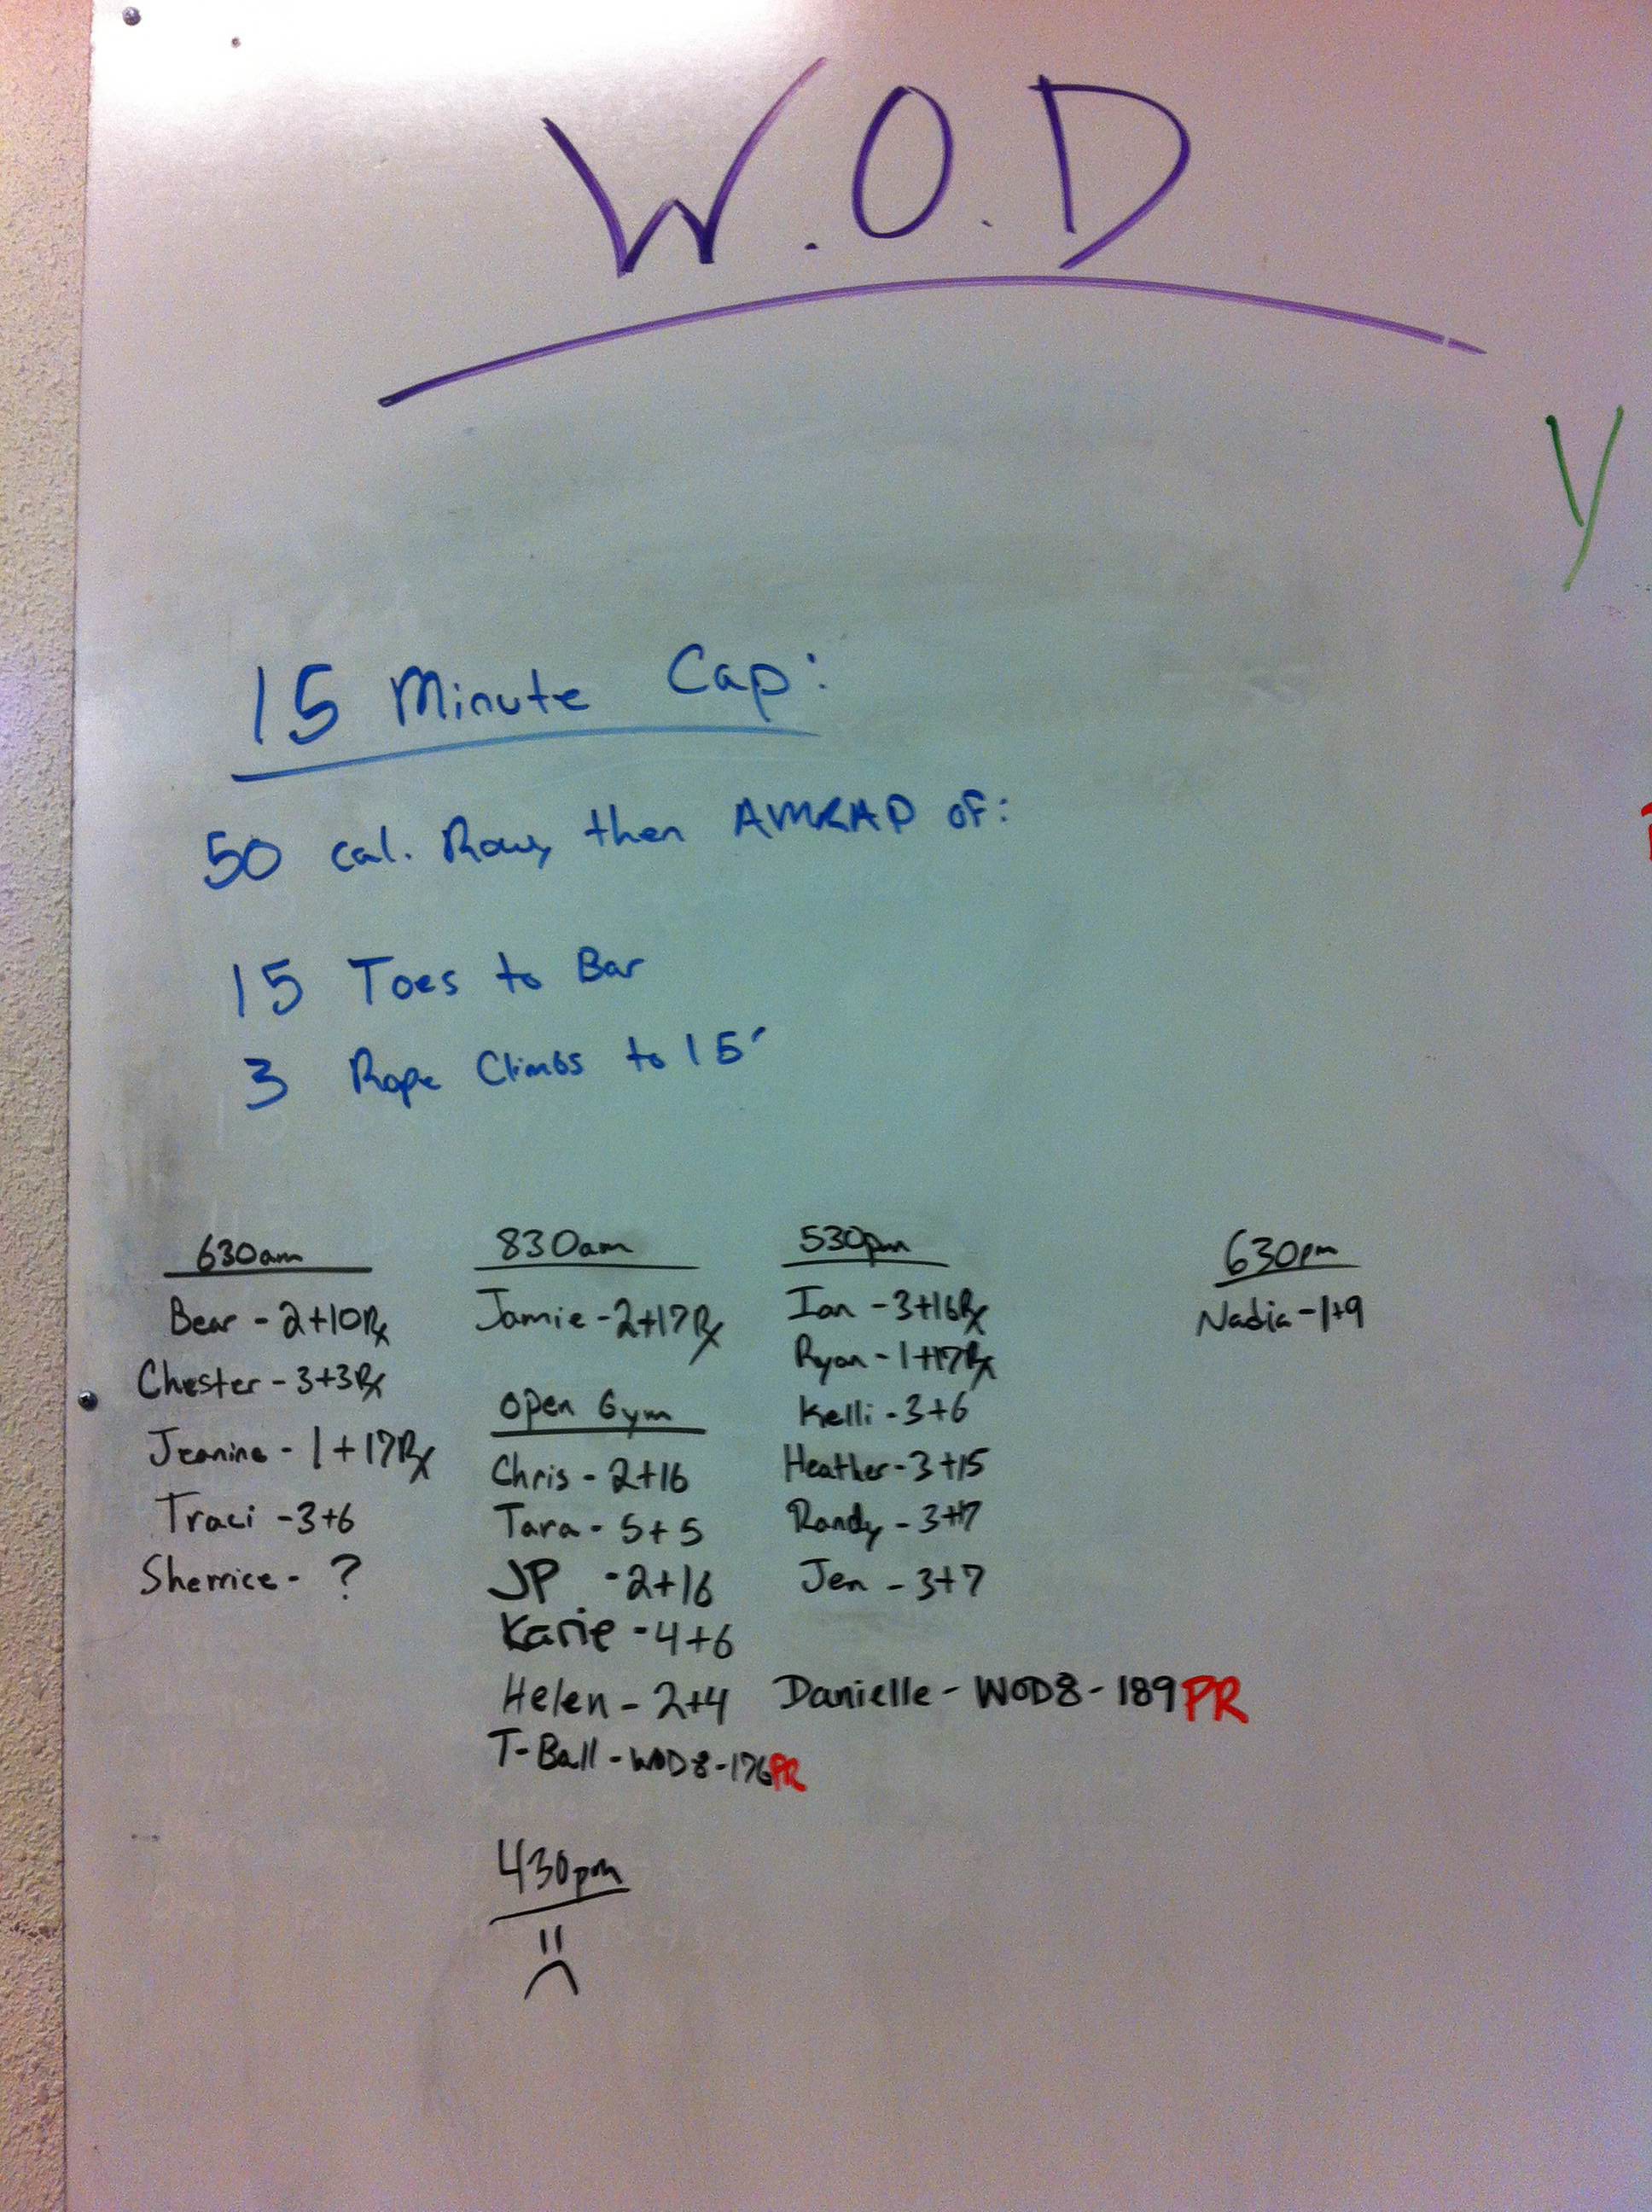 W.O.D
Y
15 Minute Cap:
50 cal. Row, then AMRAP of:
15 Toes to Bar
3 Rope Climbs to 15'
630am
Bear - 2+10Rx
Chester - 3+3Rx
Jeanine - 1+17Rx
Traci - 3+6
Sherrice - ?
830am
Jamie - 2+17Rx
Open Gym
Chris - 2+16
Tara - 5+5
JP - 2+16
Karie - 4+6
Helen - 2+4
T-Ball - WOD8 - 176PR
430pm
530pm
Ian - 3+16Rx
Ryan - 1+17Rx
Kelli - 3+6
Heather - 3+15
Randy - 3+17
Jen - 3+7
Danielle - WOD8 - 189PR
630pm
Nadia - 1+9